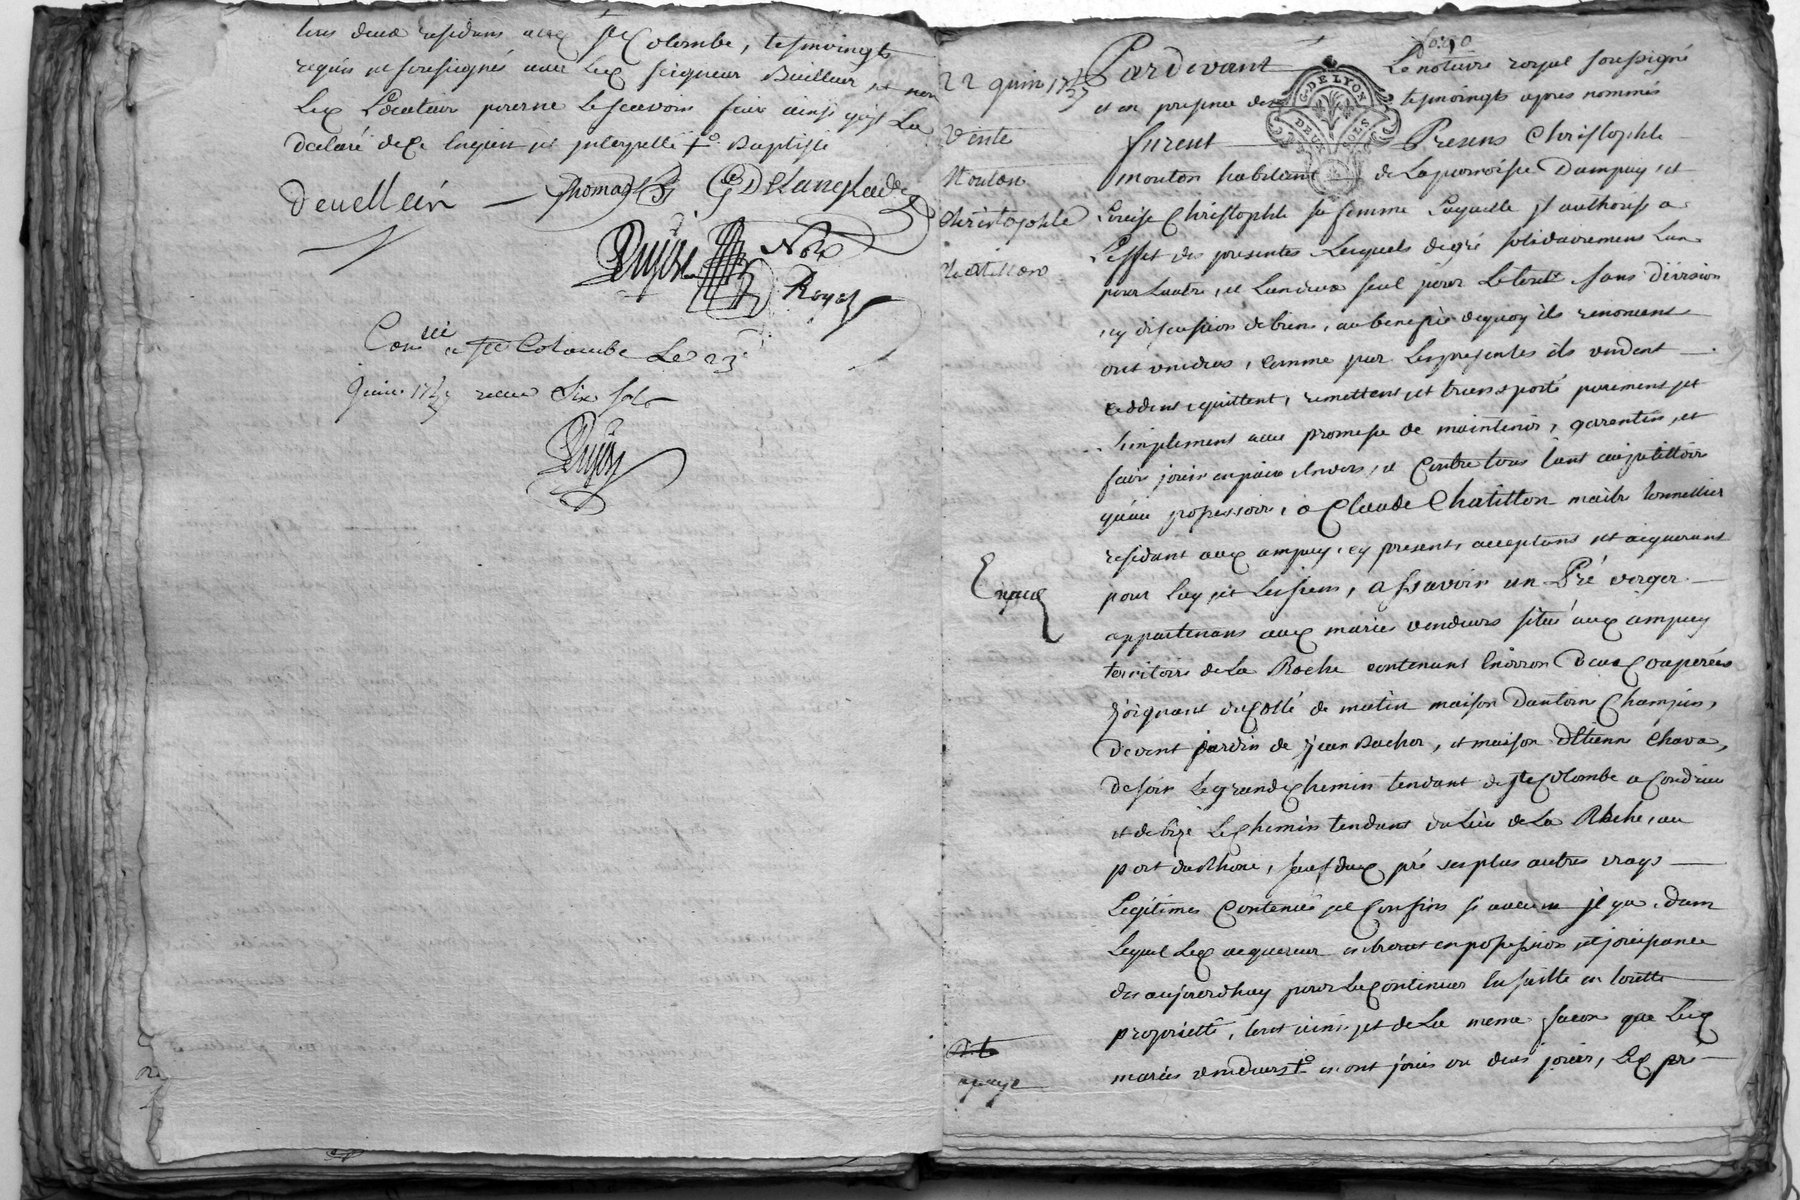 tous deux residans aux Ste Colombe, tesmoingts
requis et soussignés avec led. seigneur Bailleur et non
led. Locataire pour ne le scavoir faire ainsi qu'il la
declaré de ce enquis et interpellé Baptiste
Devellein Thomas G. Delanglade
Dujast Not.
Royal
Con.lle a Ste Colombe Le 23
juin receu Six sols
Dujast
22 juin
Vente
Mouton
Christophle
Chatillon
Expedié
Pardevant Le notaire royal soussigné
et en presence des tesmoingts apres nommés
G. DE LYON
DEUX SOLS
furent Presens Christophle
Mouton habitant de la parroisse Dampuy, et
Louise Christophle sa femme Laquelle il authorise a
L'effet des presentes Lesquels de gré solidairement L'un
pour Lautre, et Lun deux seul pour Le tout sans division
ny discussion de biens, au benefice de quoy ils renoncent
ont vendus, comme par Les presentes ils vendent
ceddent, quittent, remettent et transporté purement et
simplement avec promesse de maintenir, garentir, et
faire jouir en paix envers, et Contre tous tant au petittoire
qu'au possessoire, a Claude Chatillon maitre tonnellier
residant aux ampuy, cy present, acceptant et aquerant
pour Luy et Les siens, assavoir un Pré verger
appartenans aux mariés vendeurs situé aux ampuy
territoire de La Roche contenant Environ Deux Couperées
joignant du Cotté de matin maison Dantoine Champin,
de vent jardin de Jean Bachor, et maison D'Etienne Chava,
de soir Le grand Chemin tendant de Ste Colombe a Condrieu
et de bize Le Chemin tendant du Lieu de La Roche, au
port du Rhone, sauf dud. pré ses plus autres vrays
Legitimes Contenue et Confins si aucun il y a, dans
Lequel Led. acquereur entrerat en possession et jouissance
des aujourdhuy pour Le Continuer la suitte en toutte
proprietté, tout ainsi et de La meme facon que Lesd.
mariés vendeurs en ont jouis ou deus jouir, Led. pre